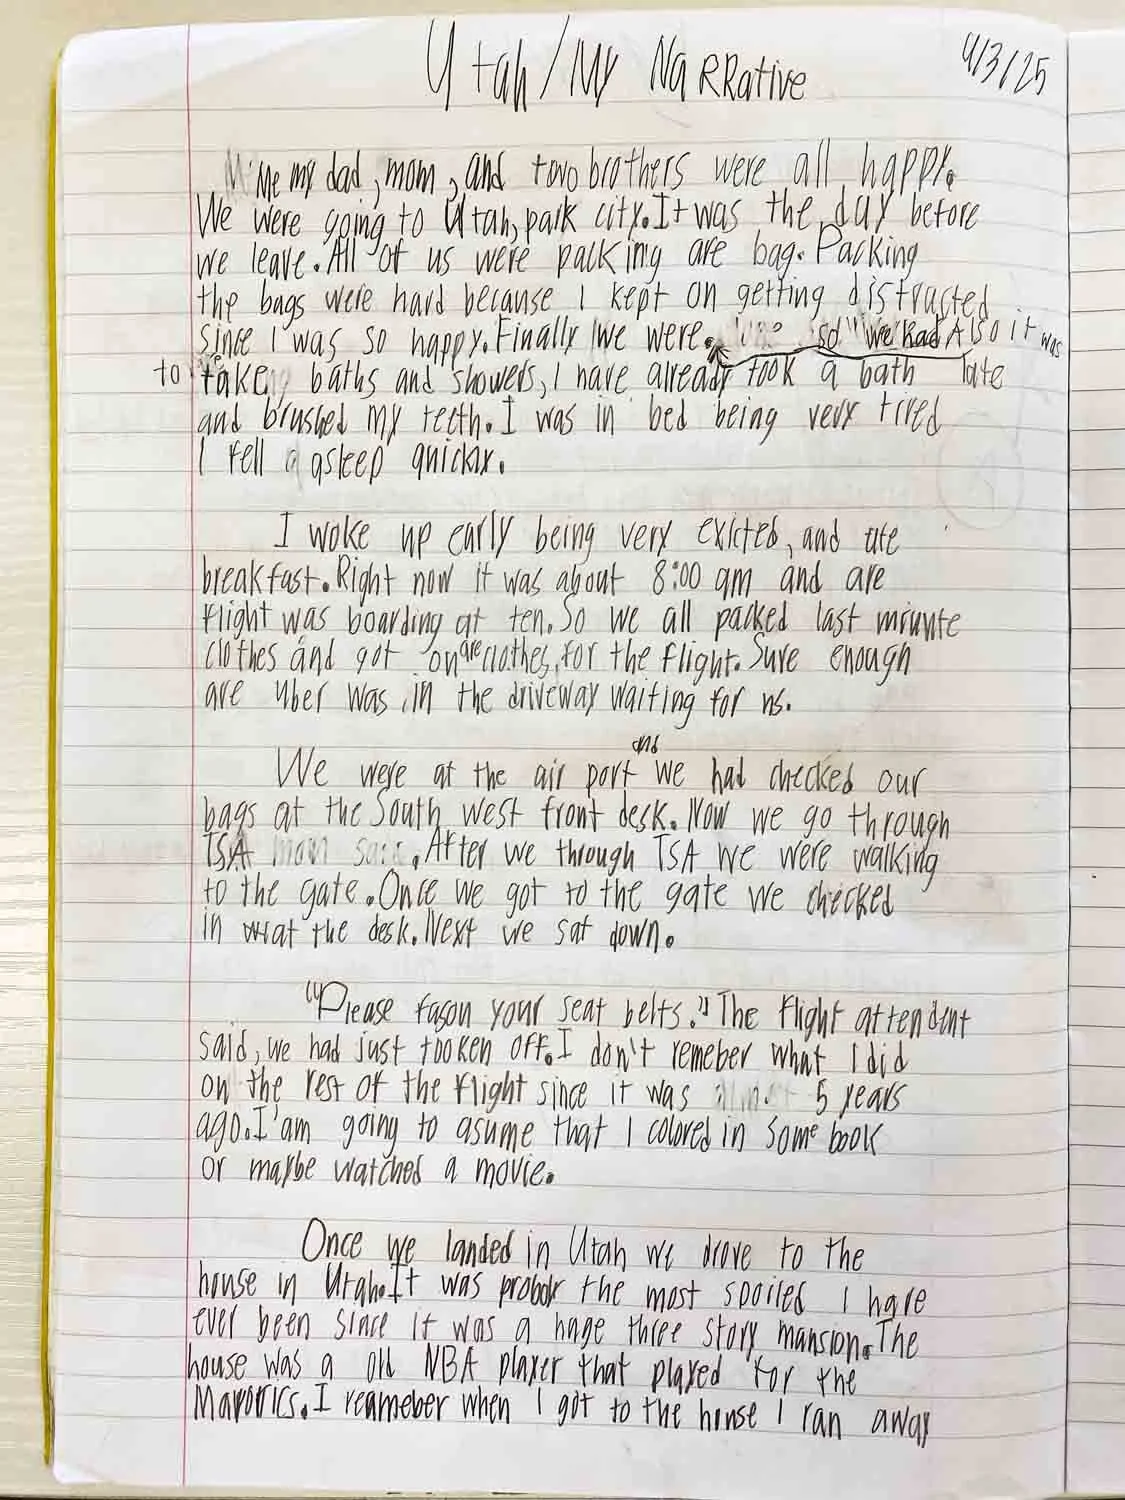 Utah/My NaRRative
9/3/25
Me my dad, mom, and two brothers were all happy.
We were going to Utah, park city. It was the day before
we leave. All of us were packing are bag. Packing
the bags were hard because I kept on getting distracted
since I was so happy. Finally we were. so we had Also it was
to take baths and showers, I have already took a bath late
and brushed my teeth. I was in bed being very tired
I fell asleep quickly.
I woke up early being very exicted, and ate
breakfast. Right now it was about 8:00 am and are
flight was boarding at ten. So we all packed last minunte
clothes and got on are clothes, for the flight. Sure enough
are uber was in the driveway waiting for us.
and
We were at the air port we had checked our
bags at the South west front desk. Now we go through
TSA. After we through TSA we were walking
to the gate. Once we got to the gate we checked
in at the desk. Next we sat down.
"Please fason your seat belts." The flight attendent
said, we had just tooken off. I don't remeber what I did
on the rest of the flight since it was 5 years
ago. I'am going to asume that I colored in some book
or maybe watched a movie.
Once we landed in Utah we drove to the
house in Utah. It was proboly the most spoiled I have
ever been since it was a huge three story mansion. The
house was a old NBA player that played for the
Mavorics. I reameber when I got to the house I ran away